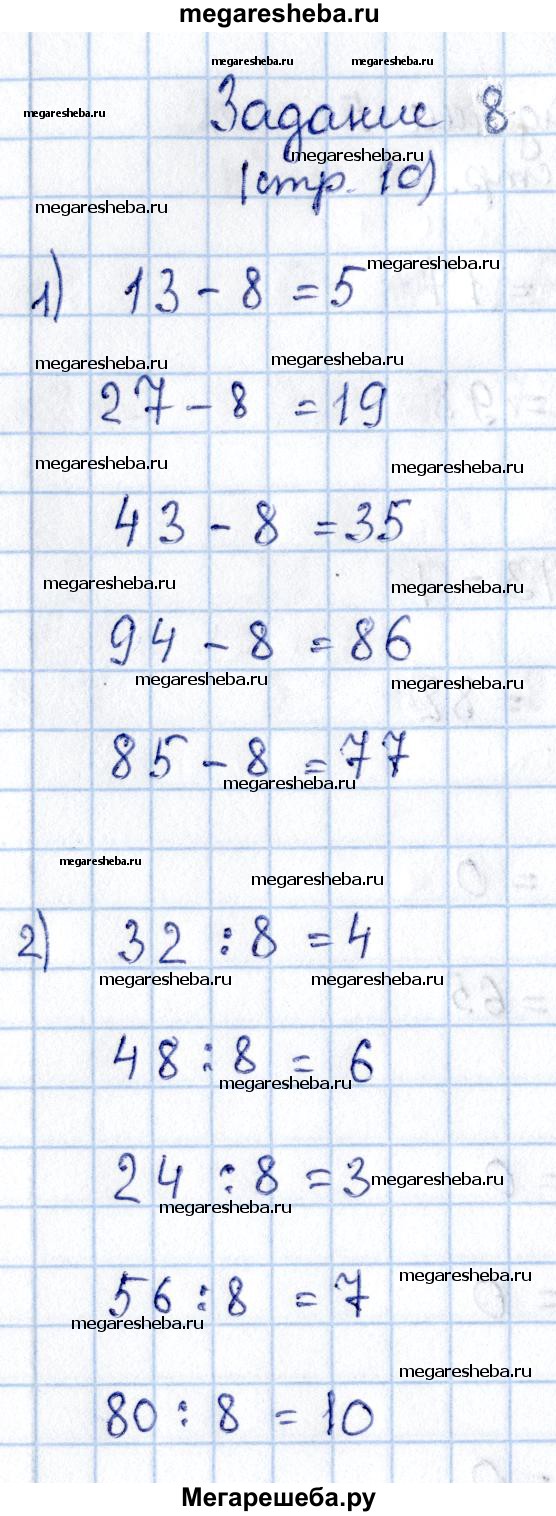 megaresheba.ru
megaresheba.ru megaresheba.ru
megaresheba.ru
Задание 8
megaresheba.ru
(стр. 10)
megaresheba.ru
megaresheba.ru
1) 13 - 8 = 5
megaresheba.ru megaresheba.ru
27 - 8 = 19
megaresheba.ru megaresheba.ru
43 - 8 = 35
megaresheba.ru megaresheba.ru
94 - 8 = 86
megaresheba.ru megaresheba.ru
85 - 8 = 77
megaresheba.ru
megaresheba.ru
megaresheba.ru
2) 32 : 8 = 4
megaresheba.ru megaresheba.ru
48 : 8 = 6
megaresheba.ru
24 : 8 = 3
megaresheba.ru
megaresheba.ru
megaresheba.ru
56 : 8 = 7
megaresheba.ru
megaresheba.ru
80 : 8 = 10
Мегарешеба.ру